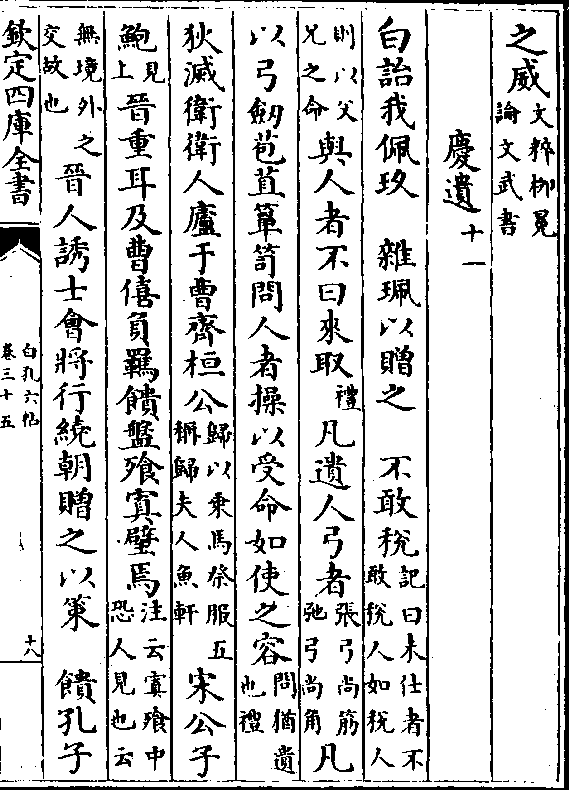 之威文粹柳冕論文武書
慶遺十一
白詒我佩玖　雜珮以贈之　不敢稅記曰未仕者不敢稅人如稅人
則以父兄之命與人者不曰來取禮凡遺人弓者張弓尚筋弛弓尚角凡
以弓劒苞苴簞笥問人者操以受命如使之容問猶遺也禮
狄滅衛衛人廬于曹齊桓公歸以乘馬祭服五稱歸夫人魚軒宋公子
鮑見上晉重耳及曹僖負羈饋盤飱寘璧焉注云寘飱中恐人見也云
無境外之交故也晉人誘士會將行繞朝贈之以策　饋孔子
欽定四庫全書
白孔六帖
卷三十五
十八